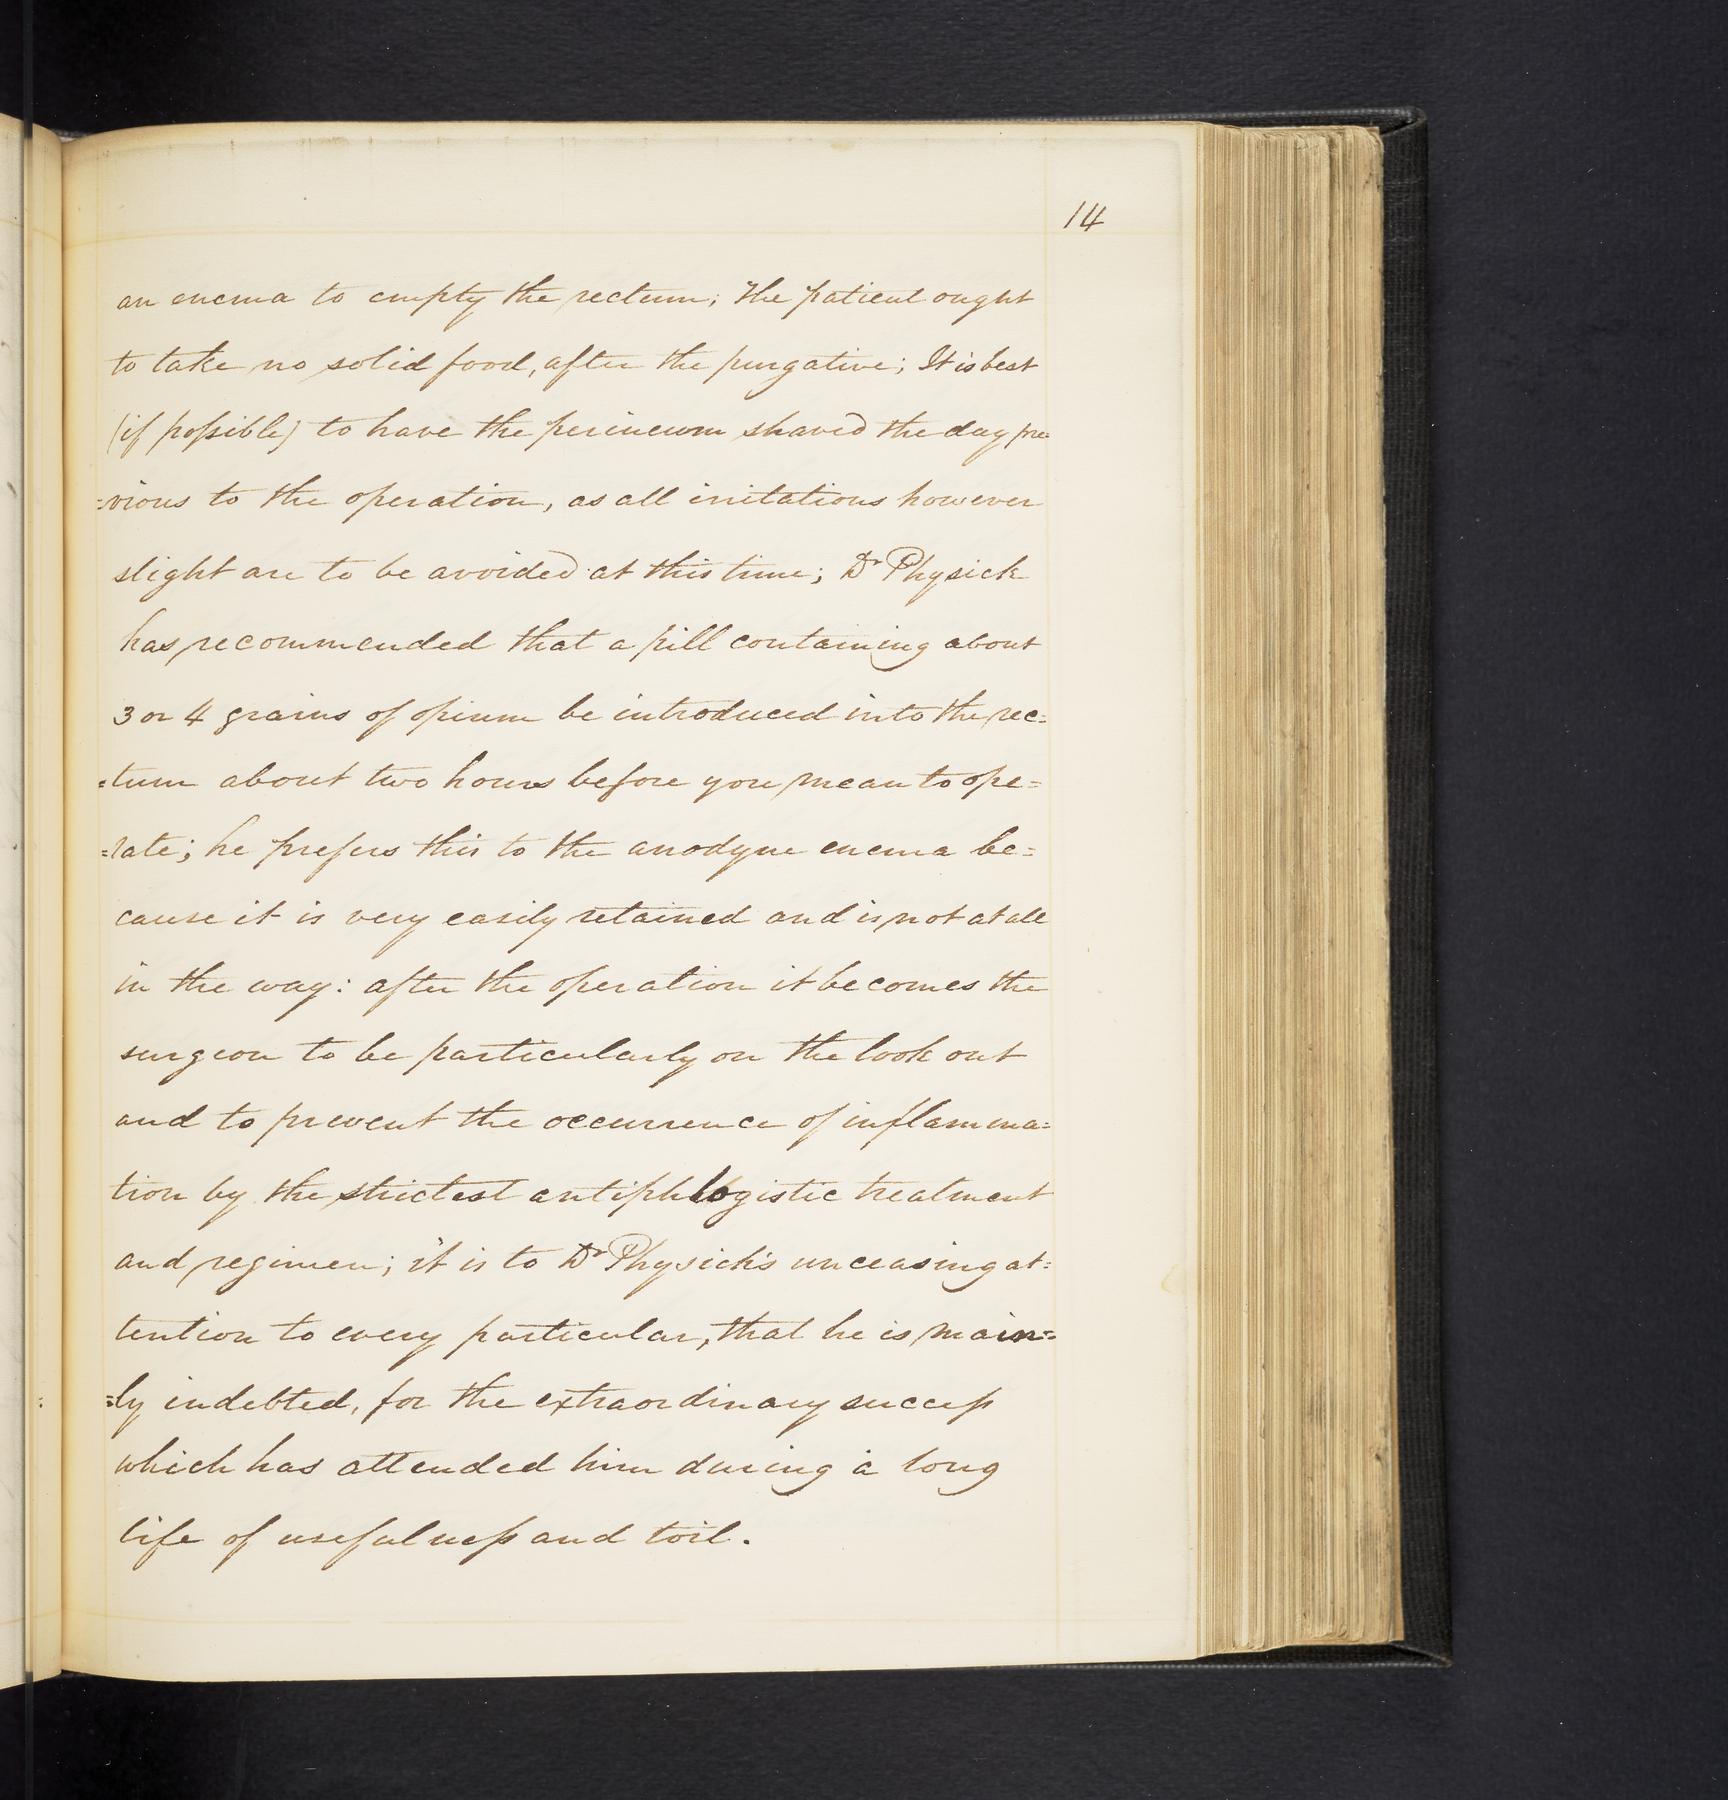 14
an enema to empty the rectum; The patient ought
to take no solid food, after the purgative; It is best
(if possible) to have the perineum shaved the day pre=
=vious to the operation, as all irritations however
slight are to be avoided at this time; Dr Physick
has recommended that a pill containing about
3 or 4 grains of opium be introduced into the rec=
=tum about two hours before you mean to ope=
=rate; he prefers this to the anodyne enema be=
cause it is very easily retained and is not at all
in the way: after the operation it becomes the
surgeon to be particularly on the look out
and to prevent the occurrence of inflamma=
tion by the strictest antiphlogistic treatment
and regimen; it is to Dr Physick's unceasing at=
tention to every particular, that he is main=
=ly indebted, for the extraordinary success
which has attended him during a long
life of usefulness and toil.